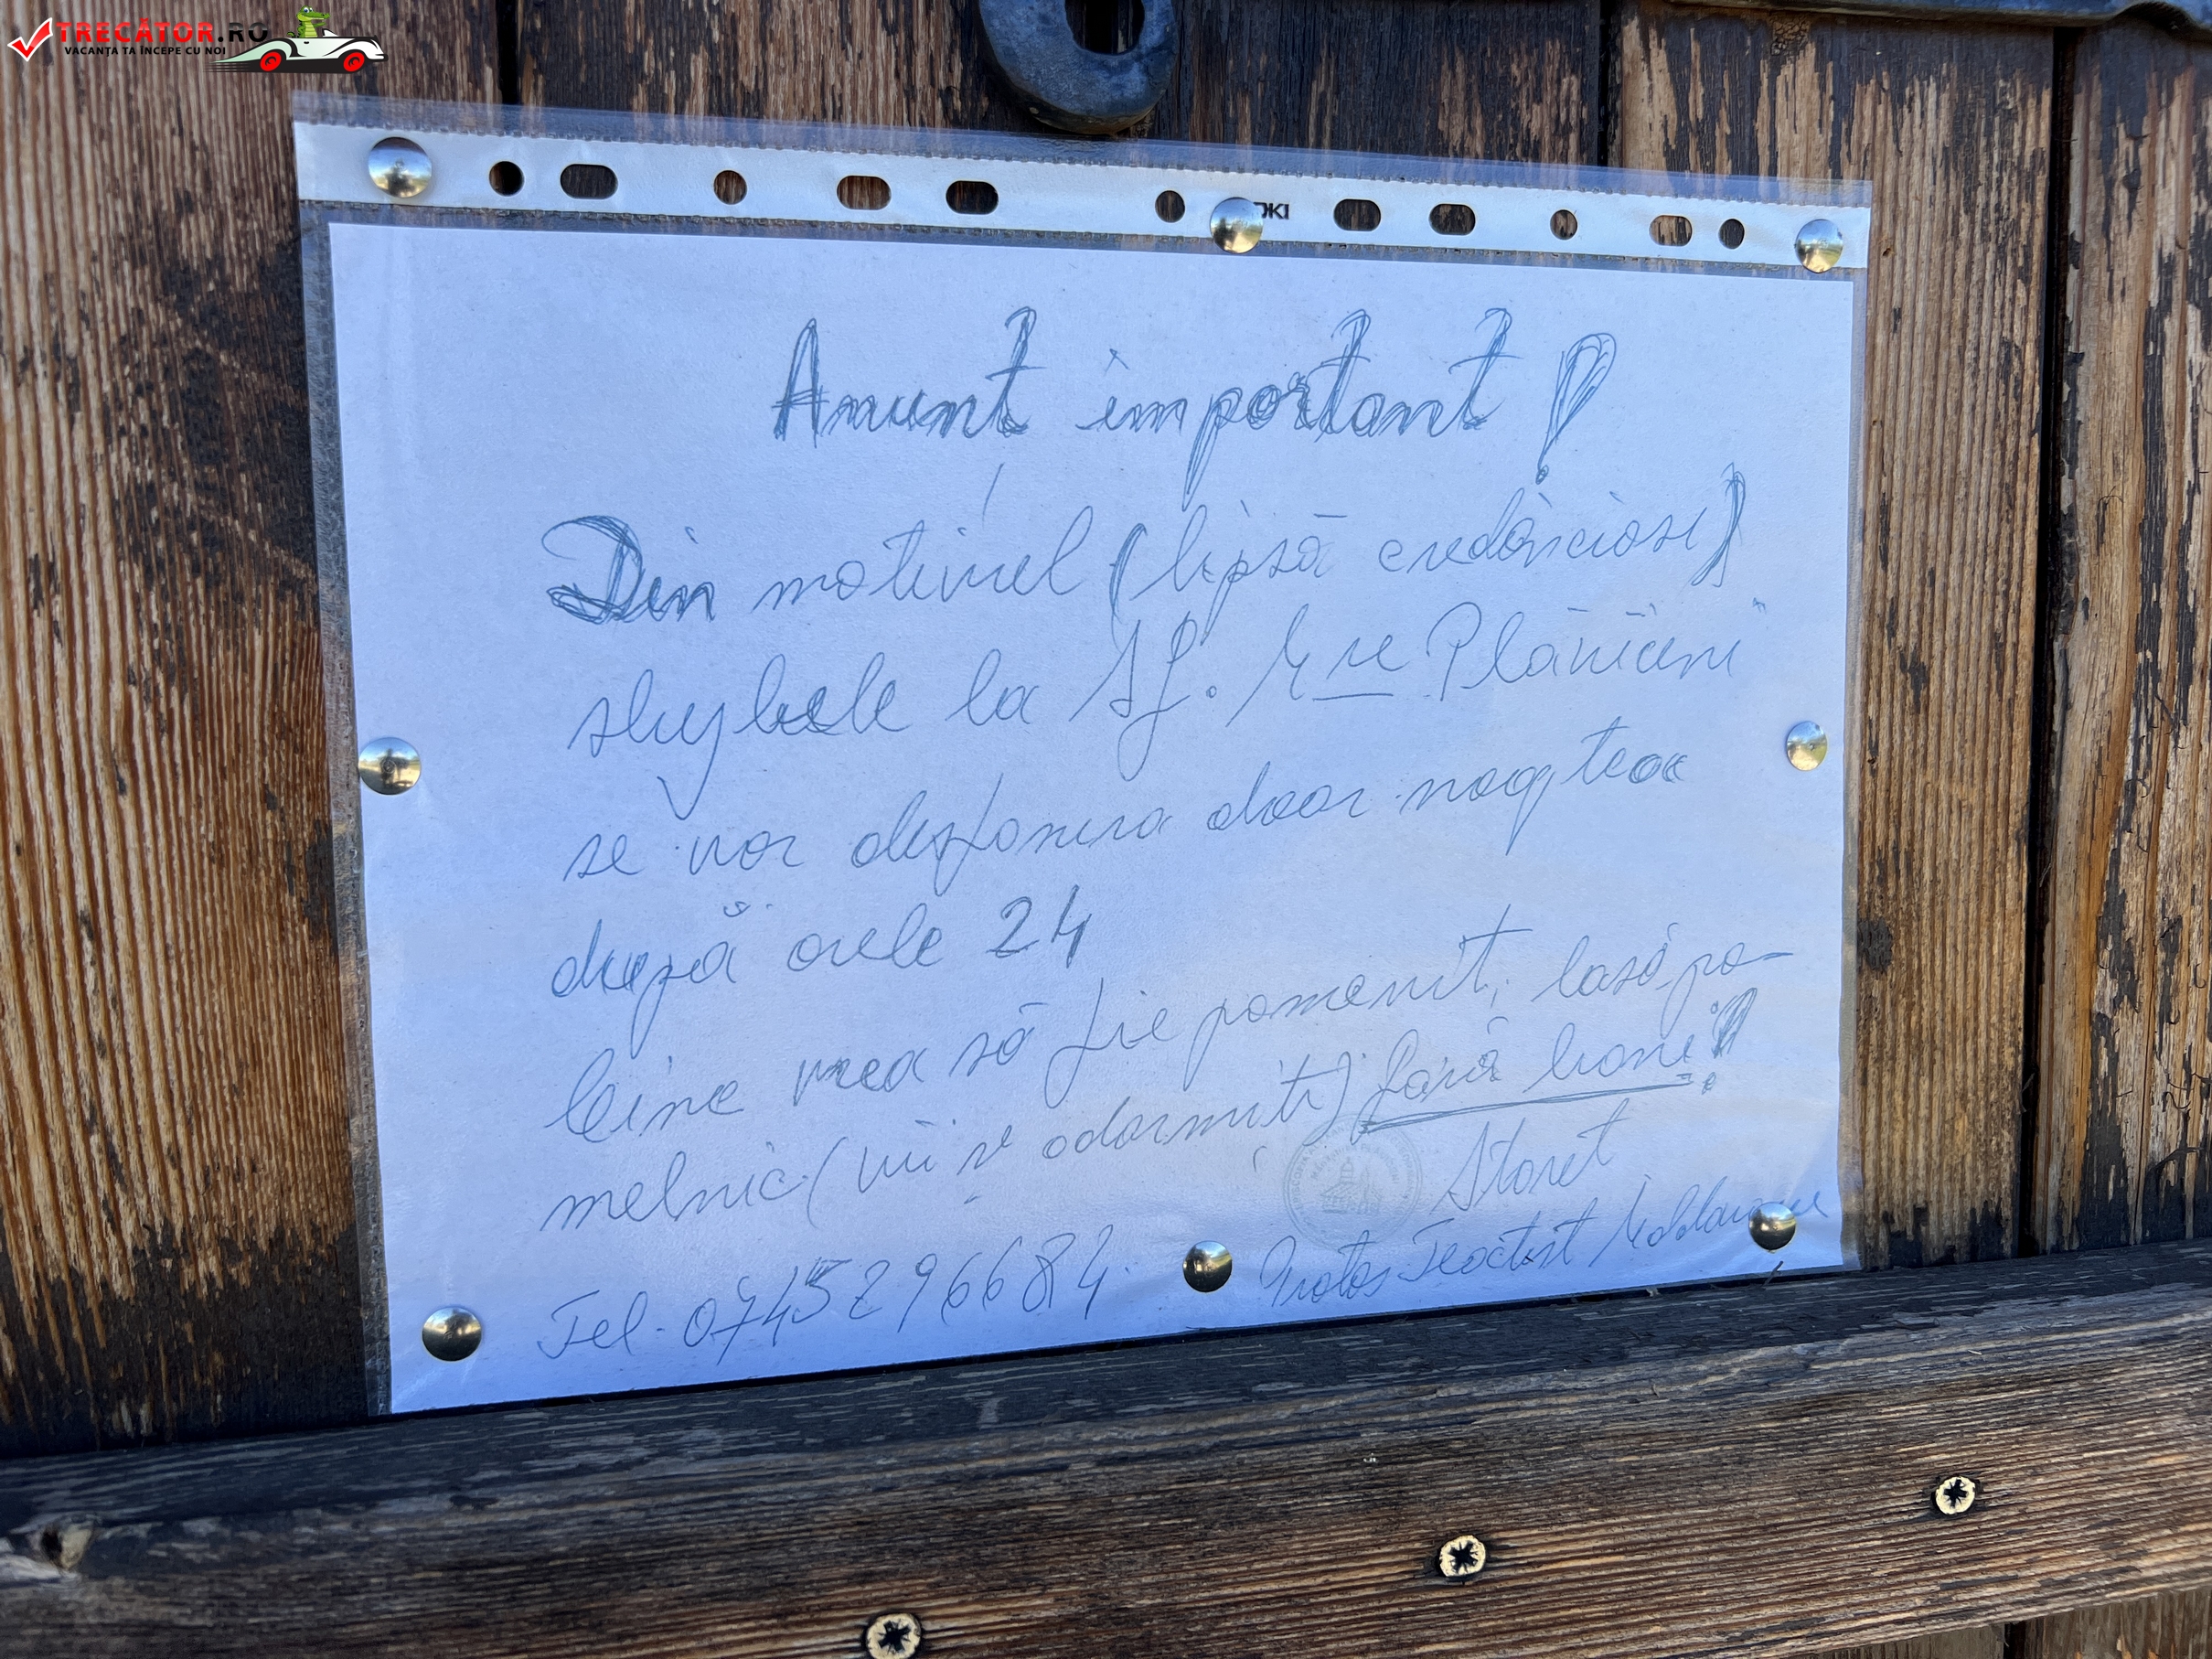 TRECĂTOR.RO
VACANȚA TA ÎNCEPE CU NOI
Anunț important!
Din motivul (lipsă credincioși)
slujbele la Sf. M-re Plătăreni
se vor desfășura doar noaptea
după orele 24
Cine vrea să fie pomenit, lasă po-
melnic (vii și adormiți) fără bani!
Stareț
Tel. 0745296684. Protos Teoctist Moldoveanu